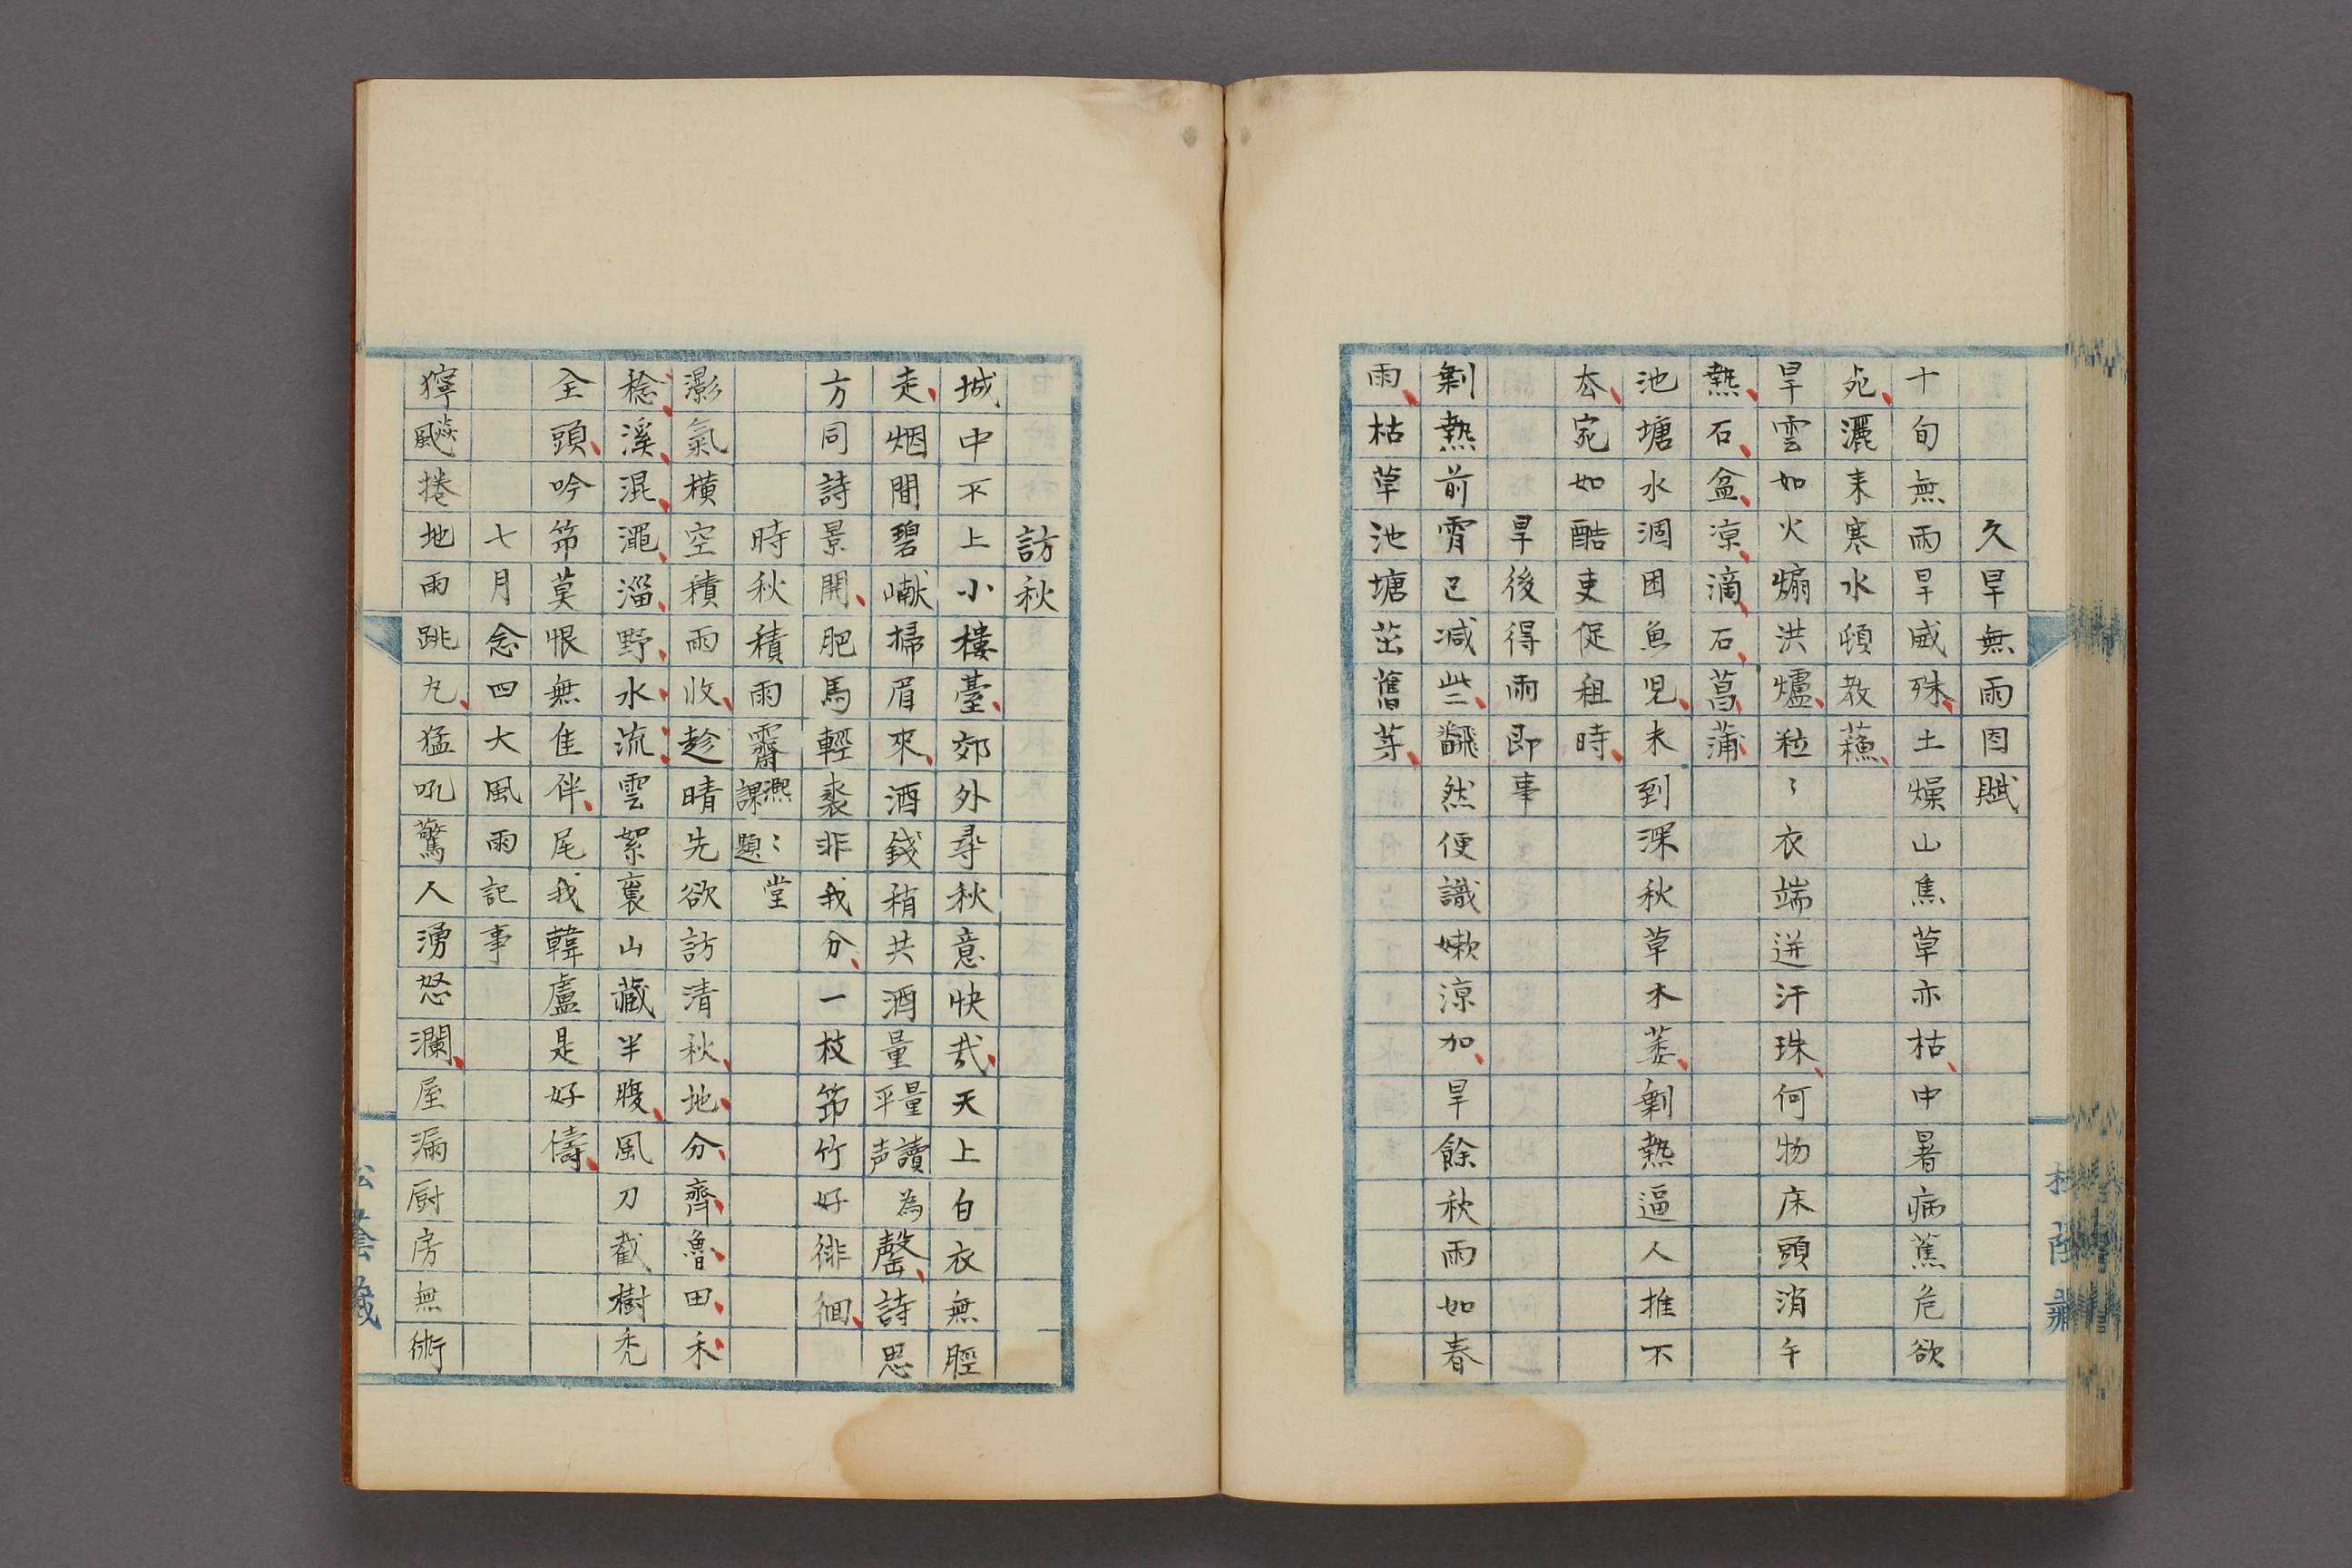 久旱無雨因賦
十旬無雨旱威殊土燥山焦草亦枯中暑病蕉危欲
死灑来寒水頓教蘓
旱雲如火煽洪爐粒〻衣端迸汗珠何物床頭消午
熱石盆凉滴石菖蒲
池塘水涸困魚児未到深秋草木萎剰熱逼人推不
去宛如酷吏促租時
旱後得雨即事
剰熱前宵已减些翻然便識嫩涼加旱餘秋雨如春
雨枯草池塘茁舊芽
訪秋
城中不上小樓臺郊外尋秋意快哉天上白衣無脛
走烟間碧巘掃眉來酒錢稍共酒量平量讀為声罄詩思
方同詩景開肥馬輕裘非我分一枝笻竹好徘徊
時秋積雨霽燃〻堂課題
灝氣横空積雨收趁晴先欲訪清秋地分齊魯田禾
稔溪混澠淄野水流雲絮裏山藏半腹風刀截樹禿
全頭吟笻莫恨無隹伴尾我韓盧是好儔
七月念四大風雨記事
獰飈捲地雨跳丸猛吼驚人湧怒瀾屋漏厨房無術